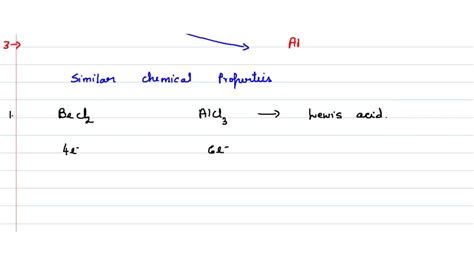 3→ Al
Similar chemical Properties
1. BeCl₂ AlCl₃ → Lewis acid.
4e⁻ 6e⁻